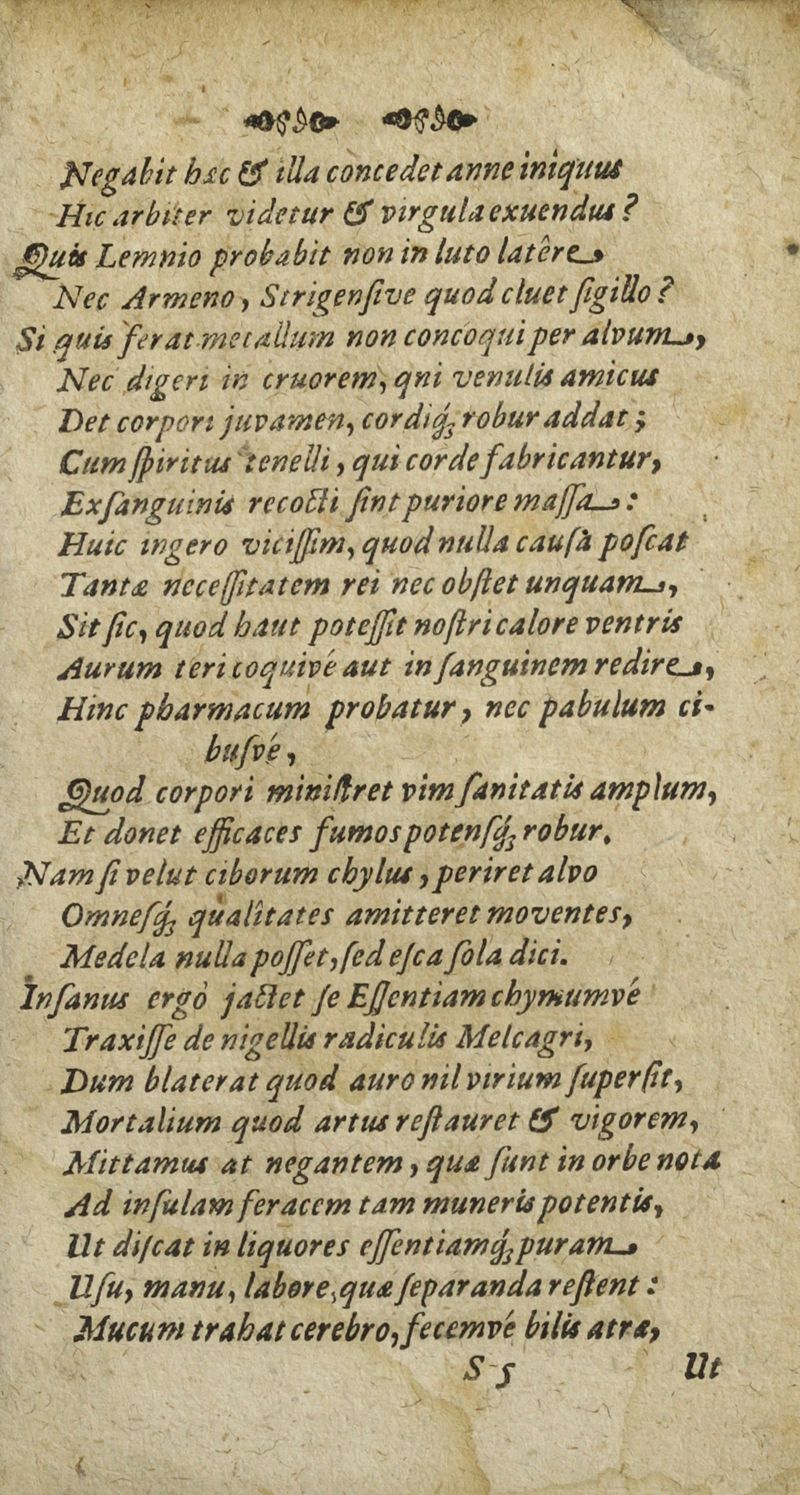 Negabit hæc & illa concedet anne iniquus
Hic arbiter videtur & virgula exuendus?
Quis Lemnio probabit non in luto latêre,
Nec Armeno, Strigensive quod cluet sigillo?
Si quis ferat metallum non concoqui per alvum,
Nec digeri in cruorem, qni venulis amicus
Det corpori juvamen, cordiq; robur addat;
Cum spiritus tenelli, qui corde fabricantur,
Exsanguinis recocti sint puriore massa:
Huic ingero vicissim, quod nulla causa poscat
Tantæ necessitatem rei nec obstet unquam,
Sit sic, quod haut potessit nostri calore ventris
Aurum teri coquivé aut in sanguinem redire,
Hinc pharmacum probatur, nec pabulum ci-
busvé,
Quod corpori ministret vim sanitatis amplum,
Et donet efficaces fumos potensq; robur.
Nam si velut ciborum chylus, periret alvo
Omnesq; qualitates amitteret moventes,
Medela nulla posset, sed esca sola dici.
Insanus ergò jactet se Essentiam chymumvé
Traxisse de nigellis radiculis Meleagri,
Dum blaterat quod auro nil virium supersit,
Mortalium quod artus restauret & vigorem,
Mittamus at negantem, quæ sunt in orbe nota
Ad insulam feracem tam muneris potentis,
Ut discat in liquores essentiamq; puram
Usu, manu, labore, quæ separanda restent:
Mucum trahat cerebro, fecemvé bilis atræ,
S 5 Ut